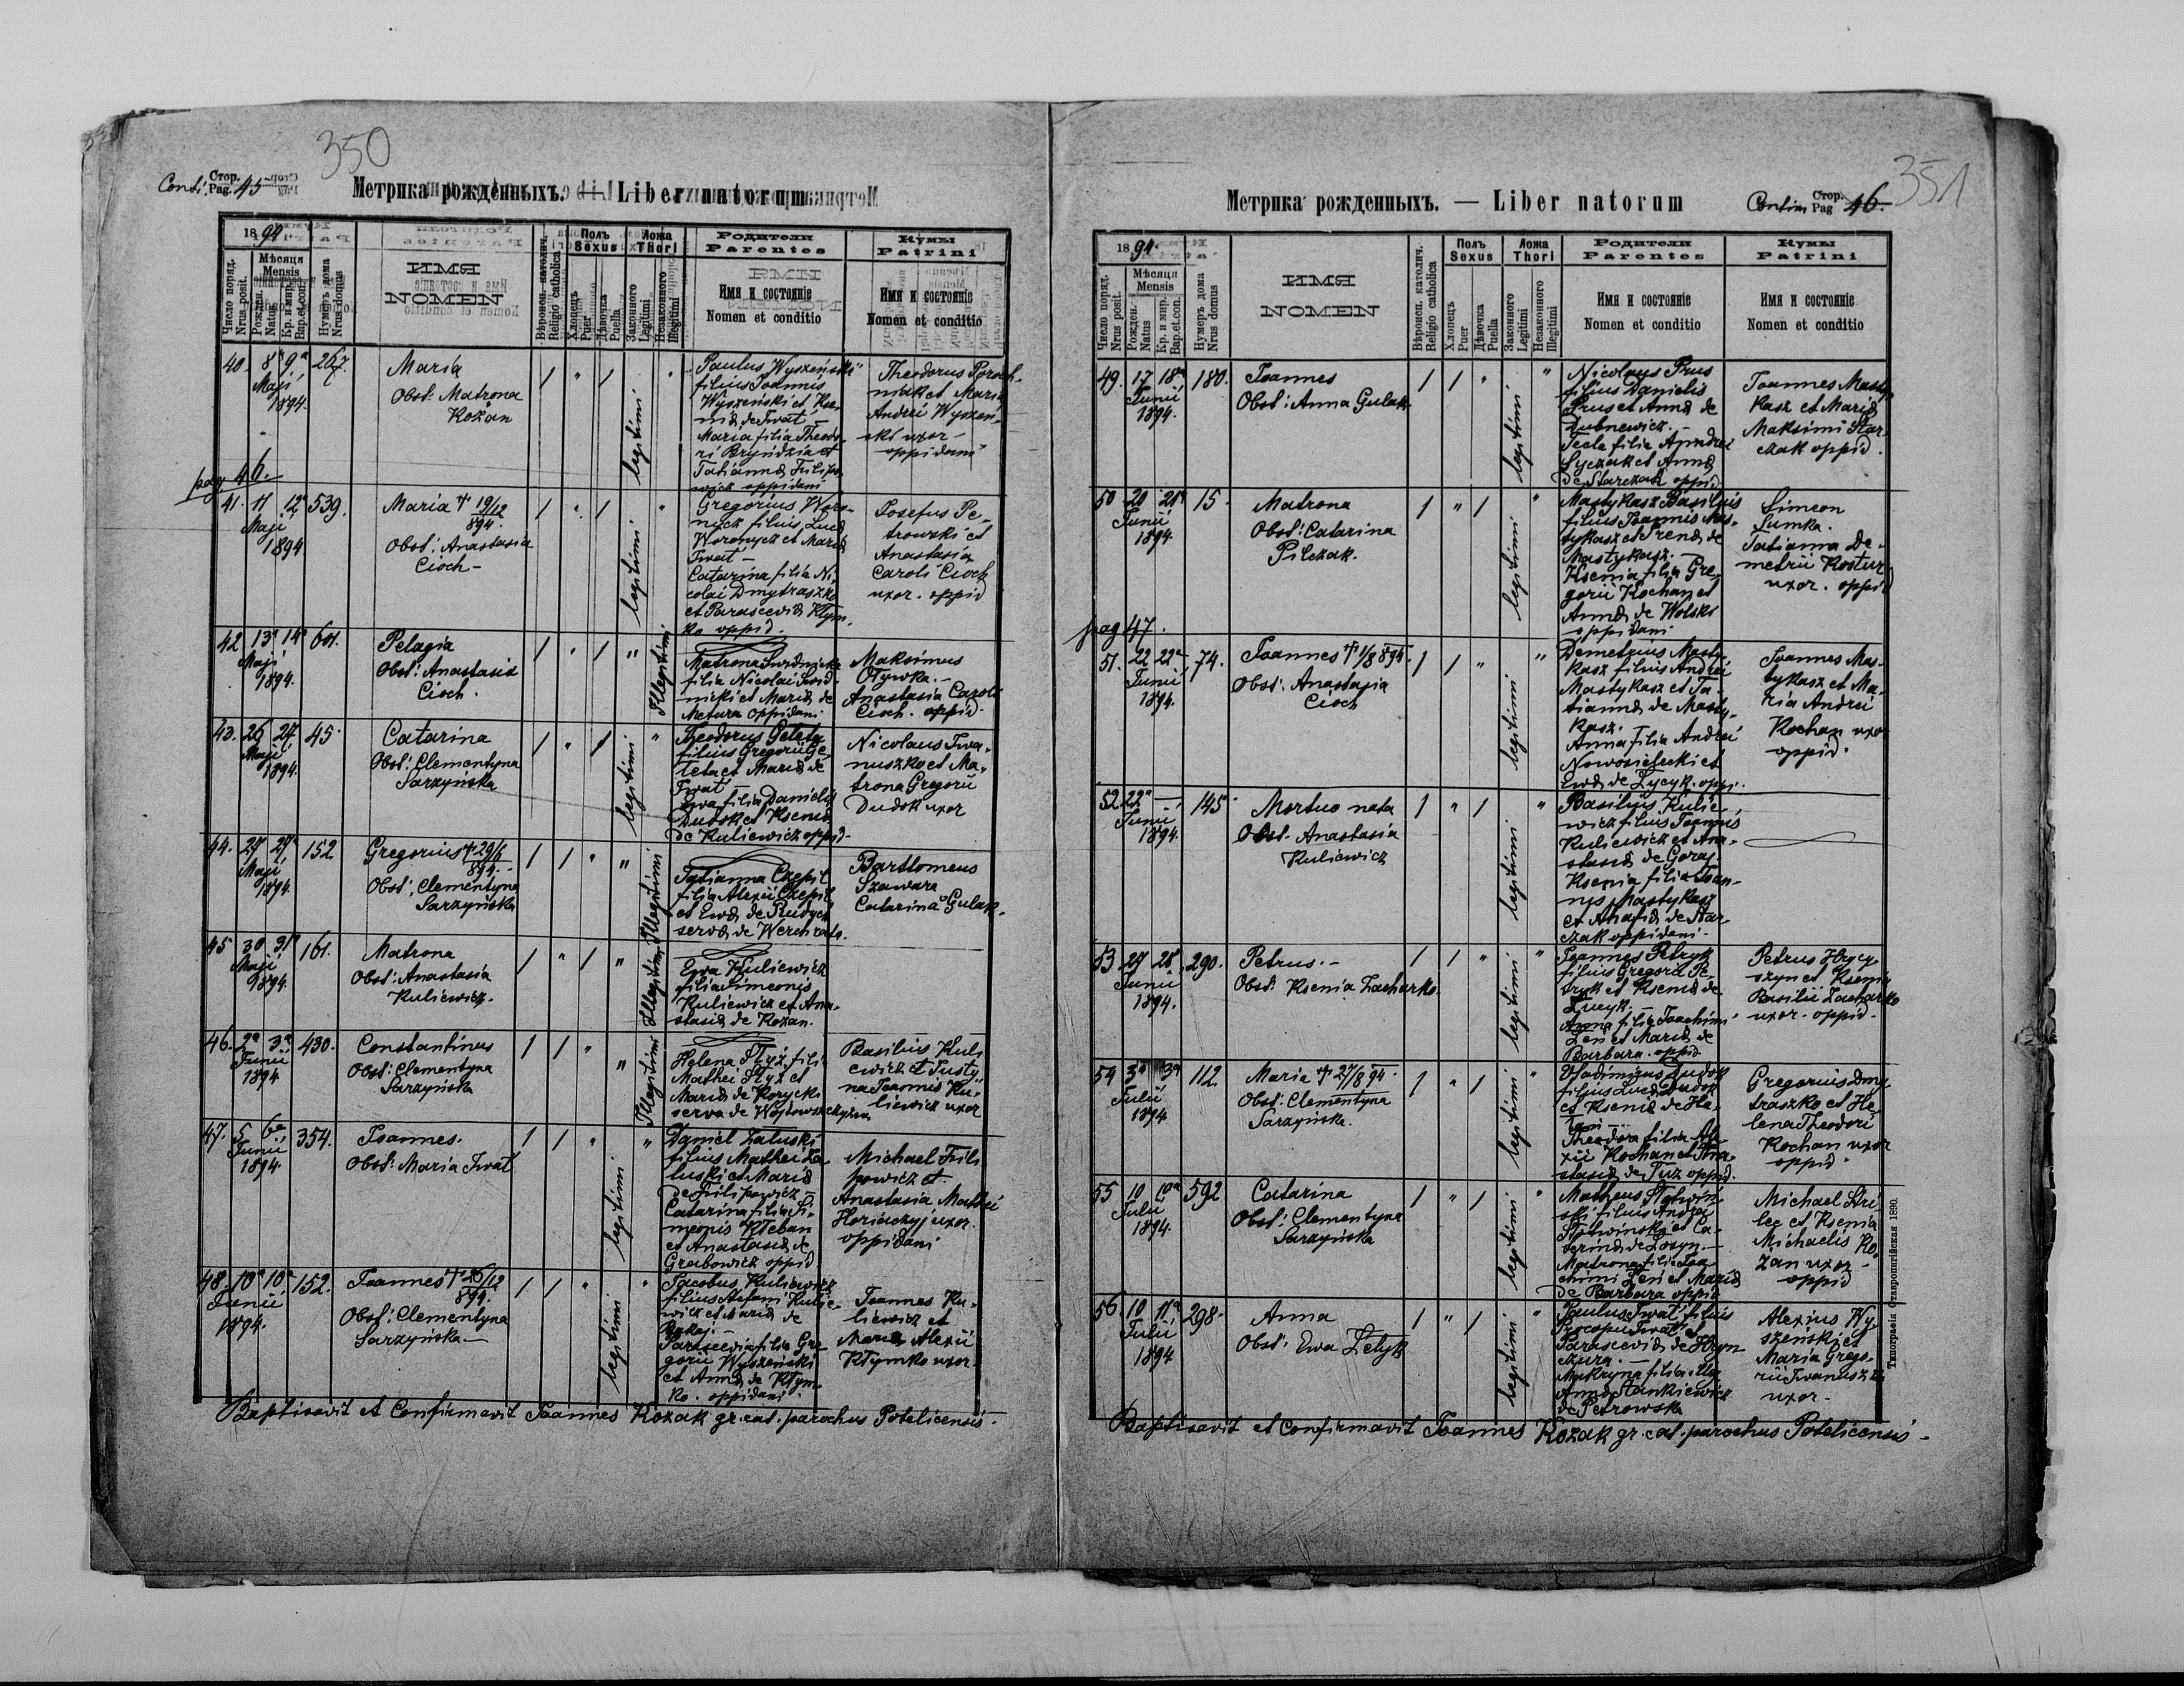 350
Conti. Стор. Pag. 45
Метрика рожденныхъ. — Liber natorum
1894.
Число поряд. Nrus posit.
Мѣсяця Mensis
Рожден. Natus
Кр. и мир. Bap.et.con.
Нумеръ дома Nrus domus
ИМЯ
NOMEN
Вѣроисп. католич. Religio catholica
Полъ Sexus
Хлопецъ Puer
Дѣвочка Puella
Ложа Thori
Законного Legitimi
Незаконного Illegitimi
Родители
Parentes
Имя и состоянie
Nomen et conditio
Кумы
Patrini
Имя и состоянie
Nomen et conditio
40. 8ª 9ª Maji 1894. 267.
Maria
Obst: Matrona
Kożan
1 " 1 legitimi "
Paulus Wyszeński
filius Joannis
Wyszeński et Kse-
niæ de Iwat —
Maria filia Theodo-
ri Bryńdzia et
Tatiannæ Filipo-
wicz oppidani
Theodorus Poroch-
niak et Maria
Andrei Wyszeń-
ski uxor —
oppidani
pag 46.
41. 11 12ª Maji 1894 539.
Maria † 19/12 894.
Obst: Anastasia
Cioch —
1 " 1 legitimi "
Gregorius Woro-
nycz filius Lucæ
Woronycz et Mariæ
Iwat —
Catarina filia Ni-
colai Dmytraszko
et Parascevia Kłym-
ko oppid.
Josefus Pe-
trowski et
Anastasia
Caroli Cioch
uxor. oppid
42 13ª 14ª Maji 1894. 601.
Pelagia
Obst: Anastasia
Cioch.
1 " 1 " Illegitimi
Matrona Swidnicka
filia Nicolai Swid-
nicki et Mariæ de
Metura oppidani
Maksimus
Otywka. —
Anastasia Caroli
Cioch. oppid.
43. 26 27 Maji 1894. 45.
Catarina
Obst: Clementyna
Sarzyńska
1 " 1 legitimi "
Theodorus Geleta
filius Gregorii Ge-
leta et Mariæ de
Iwat —
Ewa filia Danielis
Dudok et Kseniæ
de Kuliewicz oppid.
Nicolaus Iwa-
nuszko et Ma-
trona Gregorii
Dudok uxor
44. 27 27ª Maji 1894. 152
Gregorius † 29/6 894. —
Obst: Clementyna
Sarzyńska
1 1 " " Illegitimi
Tatianna Czepil
filia Alexii Czepil
et Ewæ de Rudych
serva de Werchrata.
Bartlomeus
Szawara
Catarina Gulak.
45 30 31ª Maji 1894. 161.
Matrona
Obst: Anastasia
Kuliewicz.
1 " 1 " Illegitimi
Ewa Kuliewicz
filia Simeonis
Kuliewicz et Ana-
stasia de Kożan.
46. 2ª 3ª Junii 1894 430.
Constantinus
Obst: Clementyna
Sarzyńska
1 1 " " Illegitimi
Helena Styż. filia
Mathei Styż et
Mariæ de Korycki
serva de
Basilius Kuli
ewicz et Justy
na Joannis Ku-
liewicz uxor
47. 5 6ª Junii 1894. 354.
Joannes.
Obst: Maria Iwat
1 1 " legitimi "
Daniel Załuski
filius Mathei Za-
łuski et Mariæ
de Filipowicz —
Catarina filia Si-
meonis Kleban
et Anastasia de
Grabowicz oppid
Michael Fili
powicz et
Anastasia Mathei
Horiaczyj uxor.
oppidani
48. 10ª 10ª Junii 1894. 152.
Joannes † 26/12 894.
Obst: Clementyna
Sarzyńska. —
1 1 " legitimi "
Jacobus Kuliewicz
filius Stefani Kulie-
wicz et Mariæ de
Bakaj. —
Parascevia filia Gre
gorii Wyszeński
et Annæ de Kłym-
ko. oppidani.
Joannes Ku-
liewicz et
Maria Alexii
Kłymko uxor.
Baptisavit et Confirmavit Joannes Kozak gr. cat. parochus Potelicensis.
351
Contin. Стор. Pag 46.
Метрика рожденныхъ. — Liber natorum
1894.
Число поряд. Nrus posit.
Мѣсяця Mensis
Рожден. Natus
Кр. и мир. Bap.et.con.
Нумеръ дома Nrus domus
ИМЯ
NOMEN
Вѣроисп. католич. Religio catholica
Полъ Sexus
Хлопецъ Puer
Дѣвочка Puella
Ложа Thori
Законного Legitimi
Незаконного Illegitimi
Родители
Parentes
Имя и состоянie
Nomen et conditio
Кумы
Patrini
Имя и состоянie
Nomen et conditio
49. 17 18ª Junii 1894. 180.
Joannes
Obst: Anna Gulak
1 1 " legitimi "
Nicolaus Prus
filius Danielis
Prus et Annæ de
Dubnewicz. —
Tecla filia Andrei
Syczak et Annæ
de Starczak oppid
Joannes Masty-
kasz et Maria
Maksimi Star
czak oppid.
50 20 21ª Junii 1894. 15.
Matrona
Obst: Catarina
Pilczak.
1 " 1 legitimi "
Mastykasz Basilius
filius Joannis Mas-
tykasz et Irenæ de
Mastykasz. —
Ksenia filia Gre-
gorii Kochan et
Annæ de Wolski
oppidani
Simeon
Sumka.
Tatianna De-
metrii Kostur
uxor. oppid
pag 47.
51. 22 22ª Junii 1894. 74.
Joannes † 1/8 894.
Obst: Anastasia
Cioch
1 1 " legitimi "
Demetrius Masty-
kasz filius Andrei
Mastykasz et Ta-
tianna de Masty-
kasz.
Anna filia Andrei
Nowosielecki et
Ewæ de Łycyk. opp.
Joannes Mas-
tykasz et Ma-
ria Andrei
Kochan uxor
oppid.
52. 22ª — Junii 1894. 145.
Mortuo nata
Obst. Anastasia
Kuliewicz
1 " 1 legitimi "
Basilius Kulie-
wicz filius Joannis
Kuliewicz et Ana-
stasia de Goraj.
Ksenia filia Joan-
nis Mastykasz
et Anastasiæ de Star
czak oppidani.
53. 27 28 Junii 1894. 290.
Petrus. —
Obst: Ksenia Zacharko.
1 1 " legitimi "
Joannes Petryk
filius Gregorii Pe-
tryk et Kseniæ de
Łucyk.
Anna filia Joachimi
Zeń et Mariæ de
Barbara. oppid.
Petrus Hrycy-
szyn et Ksenia
Basilii Zacharko
uxor. oppid.
54 3ª 3ª Julii 1894 112
Maria † 27/8 94.
Obst: Clementyna
Sarzyńska.
1 " 1 legitimi "
Vladimirus Dudok
filius Lucæ Dudok
et Kseniæ de
Theodora filia Ale
xii Kochan et Ana-
stasia de Tuz oppid.
Gregorius Dmy-
traszko et He-
lena Theodori
Kochan uxor
oppid.
55 10 10ª Julii 1894. 592
Catarina
Obst: Clementyna
Sarzyńska
1 " 1 legitimi "
Matheus Słotwiń-
ski filius Andrei
Słotwiński et Ca-
tarinæ de Łosyn. —
Matrona filia Joa-
chimi Zeń et Mariæ
de Barbara oppid
Michael Stri-
lec et Ksenia
Michaelis Ko-
żan uxor —
oppid
56 10 11ª Julii 1894 298.
Anna
Obst: Ewa Zelyk
1 " 1 legitimi "
Paulus Iwat filius
Procopii Iwat et
Parascevia de Hryn
czura. —
Makryna filia
Annæ Stankiewicz
de Petrowska
Alexius Wy-
szeński et
Maria Grego-
rii Iwanuszko
uxor.
Baptisavit et Confirmavit Joannes Kozak gr. cat. parochus Potelicensis —
Типографія Ставропигійская 1890.